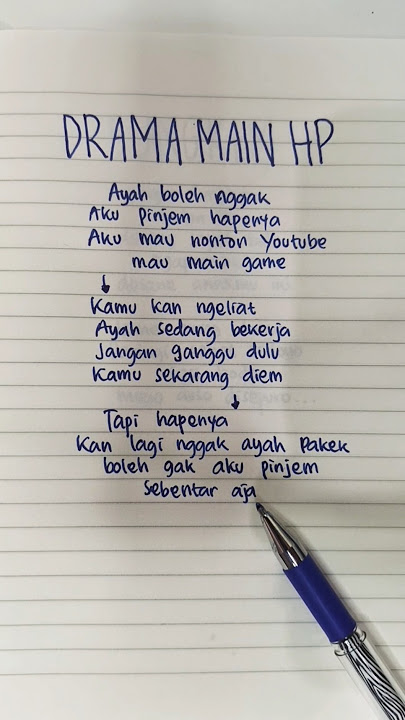 DRAMA MAIN HP
Ayah boleh nggak
Aku pinjem hapenya
Aku mau nonton Youtube
mau main game
Kamu kan ngeliat
Ayah sedang bekerja
Jangan ganggu dulu
Kamu sekarang diem
Tapi hapenya
Kan lagi nggak ayah pakek
boleh gak aku pinjem
Sebentar aja